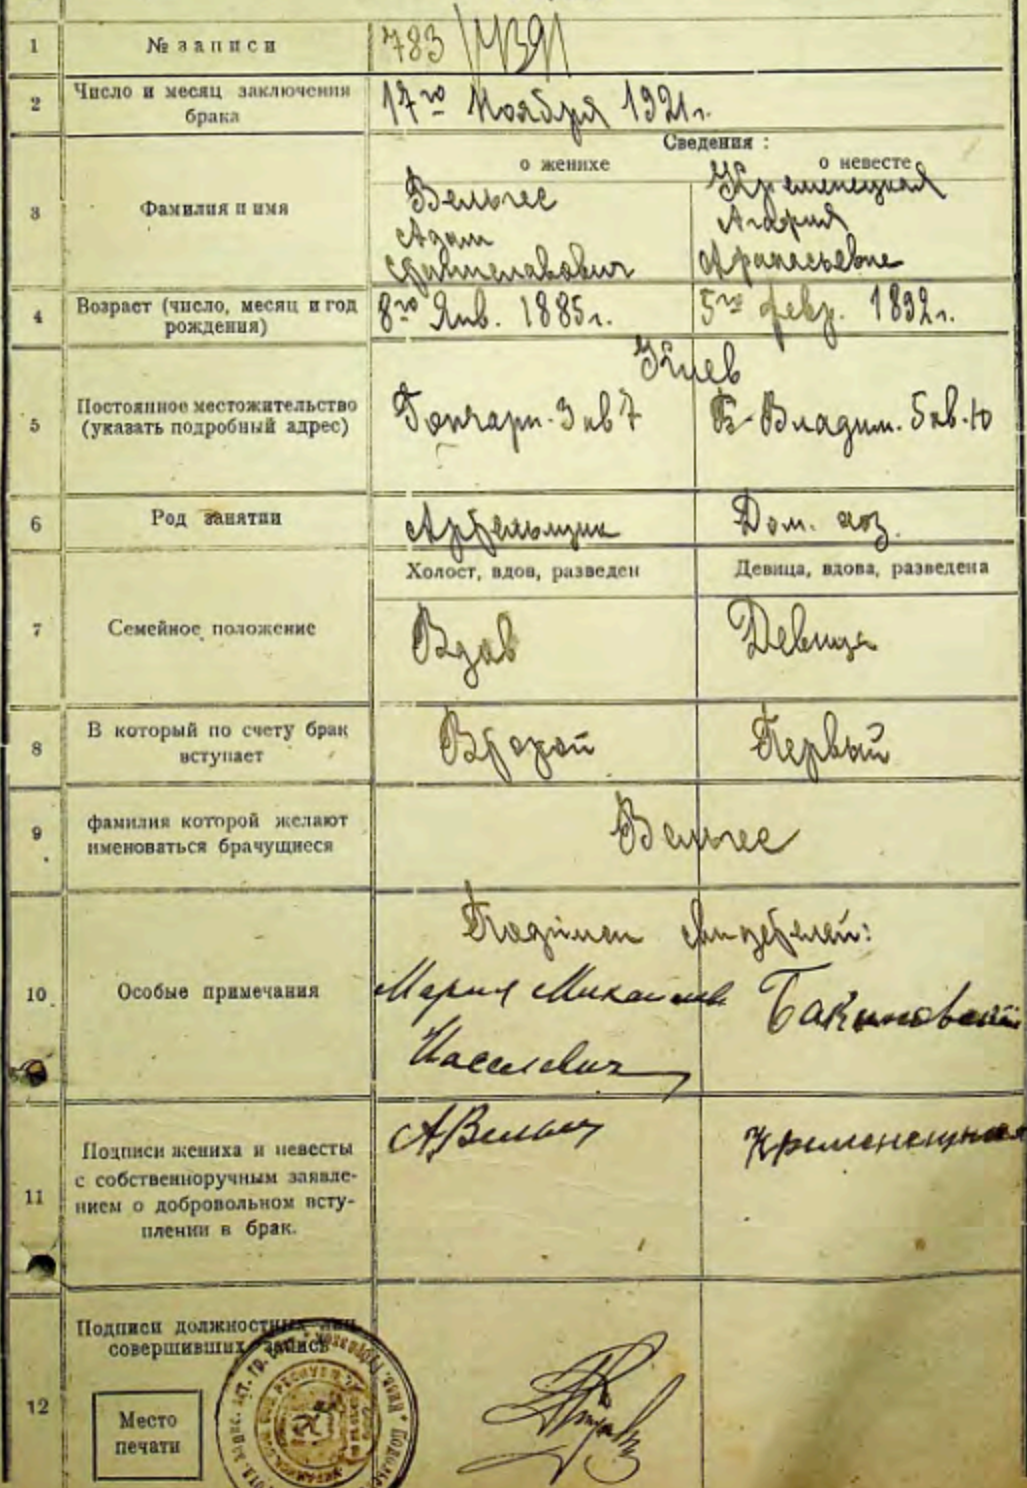 1 № записи 783
2 Число и месяц заключения
брака
17го Ноября 1921г.
Сведения :
о женихе о невесте
3 Фамилия и имя
Вельгес Кременецкая
Адам Агафия
Афанасьевне
4 Возраст (число, месяц и год
рождения)
8го Янв. 1885г. 5го февр. 1892г.
Киев
5 Постоянное местожительство
(указать подробный адрес)
Гончарн. 3 кв 7 Б-Владим. 5 кв. 10
6 Род занятии Артельщик Дом. хоз.
Холост, вдов, разведен Девица, вдова, разведена
7 Семейное положение Вдов Девица
8 В который по счету брак
вступает
Второй Первый
9 фамилия которой желают
именоваться брачущиеся
Вельгес
10 Особые примечания
Подписи свидетелей:
Мария
11 Подписи жениха и невесты
с собственноручным заявле-
нием о добровольном всту-
плении в брак.
А. Вельгес Кременецкая
12 Подписи должностных лиц
совершивших запись
Место
печати